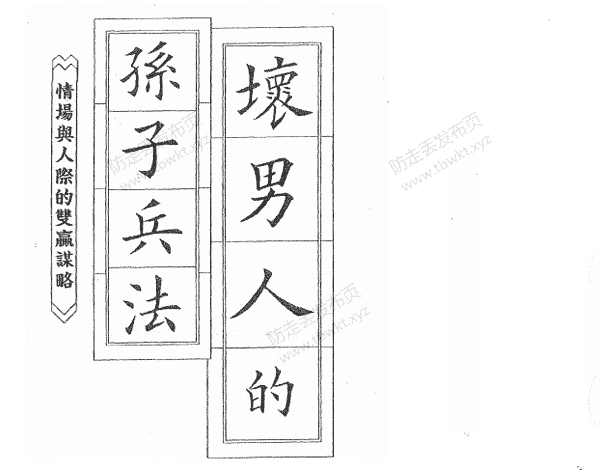 壞男人的
孫子兵法
情場與人際的雙贏謀略
防走丢发布页
www.tbwkt.xyz
防走丢发布页
www.tbwkt.xyz
防走丢发布页
www.tbwkt.xyz